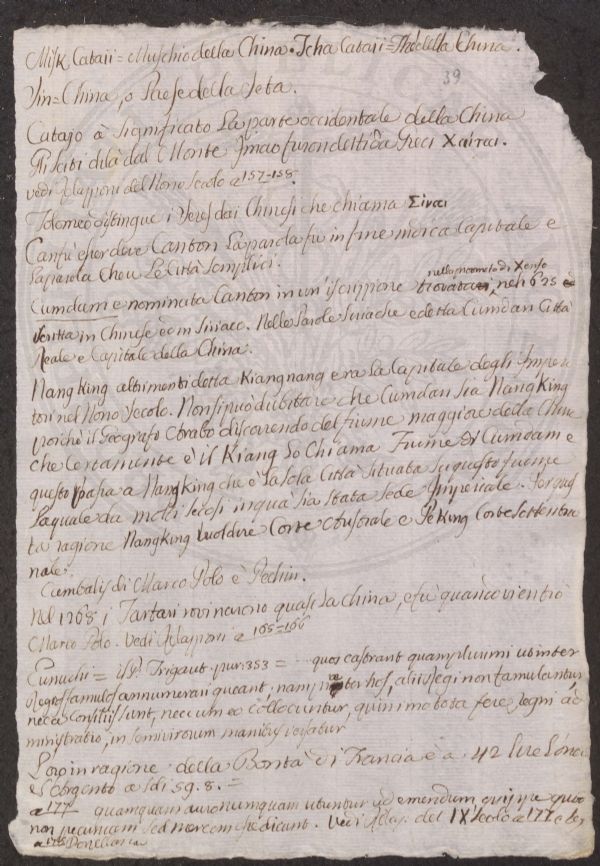 Misk Cataii = Muschio della China. Tcha Cataii = Thè della China.
39
Sin = China, o Paese della Seta.
Catajo à significato La parte occidentale della China
Gli Sciti di là dal Monte Imao furon detti da Greci Χαίται.
vedi Relazzioni del Nono Secolo a 157-158.
Tolomeo distingue i Seres dai Chinesi che chiama Σιναι
Canfù esser deve Canton La parola fù in fine indica Capitale e
La parola Cheu Le Città Semplici.
nella provincia di Xensi
Cumdam e nominata Canton in un'iscrizzione trovata nel 1625 e
scritta in Chinese ed in Siriaco. Nelle Parole Siriache e detta Cumdan Città
Reale e Capitale della China.
Nang King altrimenti detta Kiangnang era la Capitale degli Impera
tori nel Nono Secolo. Non si può dubitare che Cumdan sia Nang King
poiche il Geografo Arabo discorrendo del fiume maggiore della China
che Certamente è il Kiang Lo Chiama Fiume di Cumdam e
questo passa a Nang King che è La sola Città Situata su questo fiume
La quale da molti secoli in quà sia stata Sede Imperiale. Per
ta ragione Nang King vuol dire Corte Australe e Pe King Corte Settentrio
nale.
Cambalis di Marco Polo è Pechin.
Nel 1268 i Tartari rovinarono quasi la China, e fù quando vi entrò
Marco Polo. Vedi Relazzioni a 165=166
Eunuchi = Trigaut. pur: 353 = quos castrant quamplurimi ut inter
Regios famulos annumerari queant, nam præter hos, alii Regi non famulantur
nec a Consiliis sunt, nec cum eo colloquuntur, quin imo tota fere Regni ad-
ministratio, in semivirorum manibus versatur
L'oro in ragione della Bontà di Francia è a 42 Lire L'oncia
L'Argento a Soldi 59. 8. =
a 177 quamquam auro numquam utuntur ad emendum quia pro
non pecuniam sed mercem judicant. Vedi Relaz. del IX Secolo a 177 e